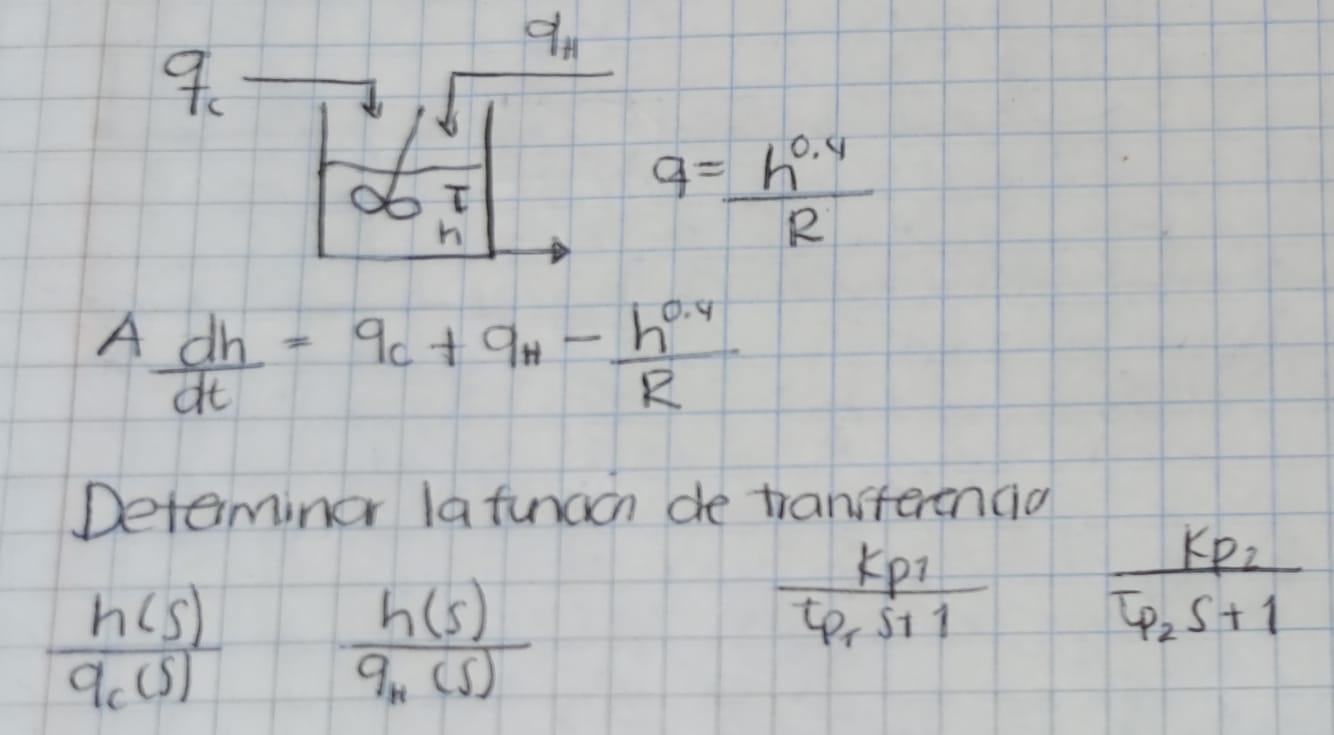 q_H
q_c
T
h
q = h^0.4 / R
A dh/dt = q_c + q_H - h^0.4 / R
Determinar la función de transferencia
h(s)/q_c(s) h(s)/q_H(s) Kp1/(τp1 s+1) Kp2/(τp2 s+1)